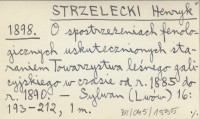 STRZELECKI Henryk
1898. O spostrzeżeniach fenolo-
gicznych uskutecznionych sta-
raniem Towarzystwa leśnego gali-
cyjskiego w czasie od r. 1885 do
r. 1890 — Sylwan (Lwów) 16:
193-212, 1 m.